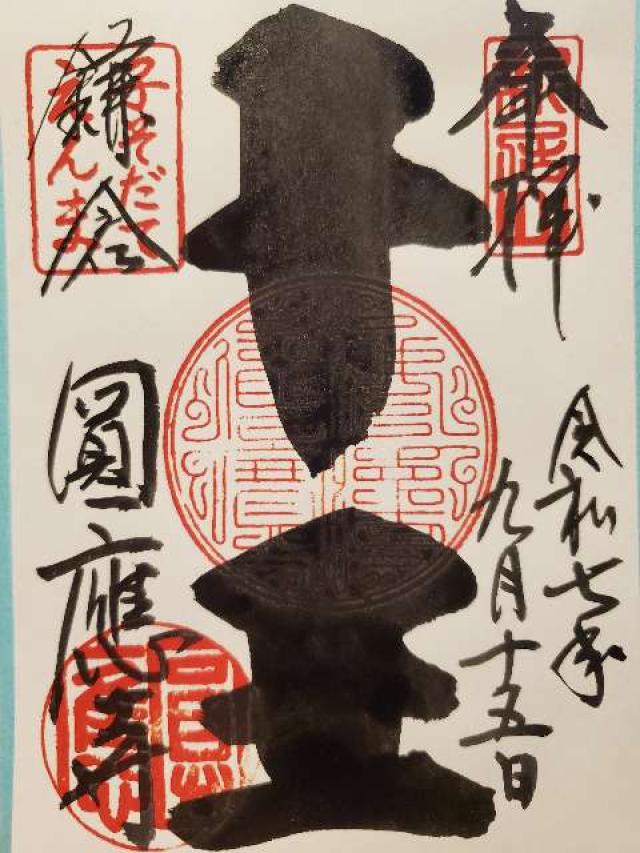 奉拝
令和七年
九月十五日
十王
鎌倉
子そだて
えんま
圓應寺